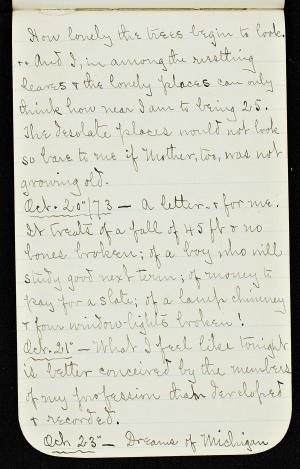 How lonely the trees begin to look.
And I, in among the rustling
leaves & the lonely places can only
think how near I am to being 25.
The desolate places would not look
so bare to me if Mother, too, was not
growing old.
Oct. 20" /73 — A letter & for me.
It treats of a fall of 45 ft & no
bones broken; of a boy who will
study good next term; of money to
pay for a slate; of a lamp chimney
& four window-lights broken!
Oct. 21" — What I feel like tonight
is better conceived by the members
of my profession than developed
& recorded.
Oct. 23" — Dreams of Michigan